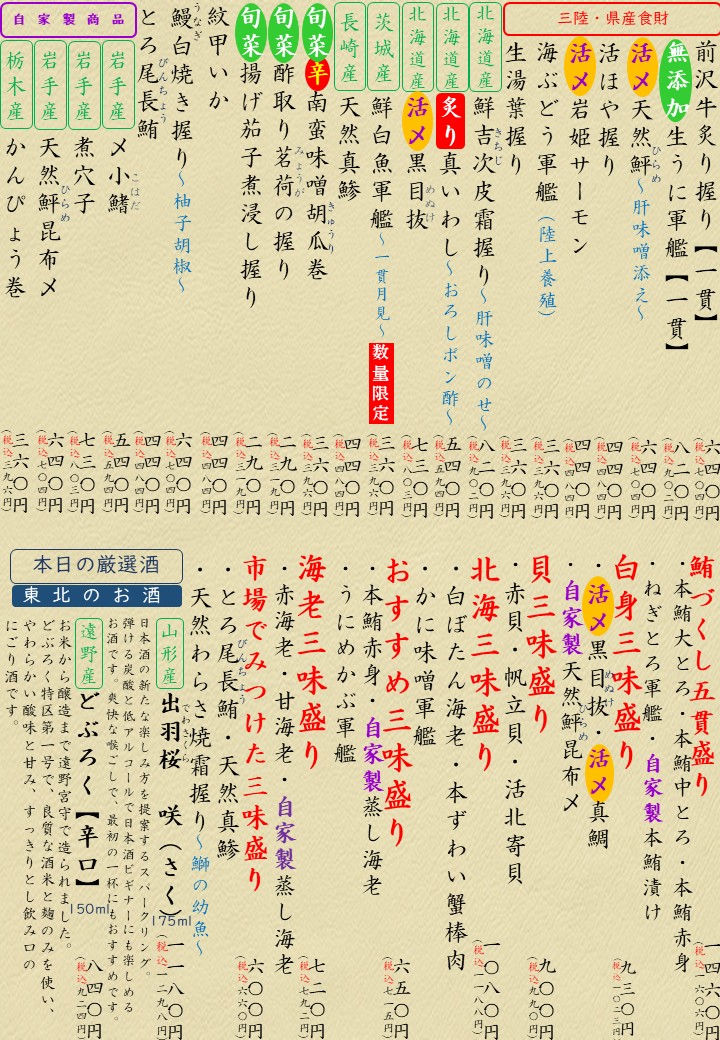 三陸・県産食財
前沢牛炙り握り【一貫】
六四〇円
(税込七〇四円)
無添加生うに軍艦【一貫】
八二〇円
(税込九〇二円)
活〆天然鮃〜肝味噌添え〜
ひらめ
六四〇円
(税込七〇四円)
活ほや握り
四四〇円
(税込四八四円)
活〆岩姫サーモン
四四〇円
(税込四八四円)
海ぶどう軍艦（陸上養殖）
三六〇円
(税込三九六円)
生湯葉握り
三六〇円
(税込三九六円)
北海道産
鮮吉次皮霜握り〜肝味噌のせ〜
きちじ
八二〇円
(税込九〇二円)
北海道産
炙り真いわし〜おろしポン酢〜
北海道産
活〆黒目抜
めぬけ
七三〇円
(税込八〇三円)
茨城産
鮮白魚軍艦〜一貫月見〜数量限定
三六〇円
(税込三九六円)
長崎産
天然真鯵
四四〇円
(税込四八四円)
旬菜辛南蛮味噌胡瓜巻
きゅうり
三六〇円
(税込三九六円)
旬菜酢取り茗荷の握り
みょうが
二九〇円
(税込三一九円)
旬菜揚げ茄子煮浸し握り
二九〇円
(税込三一九円)
紋甲いか
四四〇円
(税込四八四円)
鰻白焼き握り〜柚子胡椒〜
うなぎ
六四〇円
(税込七〇四円)
とろ尾長鮪
びんちょう
四四〇円
(税込四八四円)
自家製商品
岩手産
〆小鰭
こはだ
五四〇円
(税込五九四円)
岩手産
煮穴子
七三〇円
(税込八〇三円)
岩手産
天然鮃昆布〆
ひらめ
六四〇円
(税込七〇四円)
栃木産
かんぴょう巻
三六〇円
(税込三九六円)
鮪づくし五貫盛り
・本鮪大とろ・本鮪中とろ・本鮪赤身
・ねぎとろ軍艦・自家製本鮪漬け
一四六〇円
(税込一六〇六円)
白身三味盛り
・活〆黒目抜・活〆真鯛
めぬけ
自家製天然鮃昆布〆
ひらめ
九三〇円
(税込一〇二三円)
貝三味盛り
・赤貝・帆立貝・活北寄貝
九〇〇円
(税込九九〇円)
北海三味盛り
・白ぼたん海老・本ずわい蟹棒肉
・かに味噌軍艦
一〇八〇円
(税込一一八八円)
おすすめ三味盛り
・本鮪赤身・自家製蒸し海老
・うにめかぶ軍艦
六五〇円
(税込七一五円)
海老三味盛り
・赤海老・甘海老・自家製蒸し海老
七二〇円
(税込七九二円)
市場でみつけた三味盛り
・とろ尾長鮪・天然真鯵
びんちょう
・天然わらさ焼霜握り〜鰤の幼魚〜
六〇〇円
(税込六六〇円)
本日の厳選酒
東北のお酒
山形産
出羽桜 咲（さく）
でわさくら
175ml
一一八〇円
(税込一二九八円)
日本酒の新たな楽しみ方を提案するスパークリング。
弾ける炭酸と低アルコールで日本酒ビギナーにも楽しめる
お酒です。爽快な喉ごしで、最初の一杯にもおすすめです。
遠野産
どぶろく【辛口】
150ml
八四〇円
(税込九二四円)
お米から醸造まで遠野宮守で造られました。
どぶろく特区第一号で、良質な酒米と麹のみを使い、
やわらかい酸味と甘み、すっきりとし飲み口の
にごり酒です。